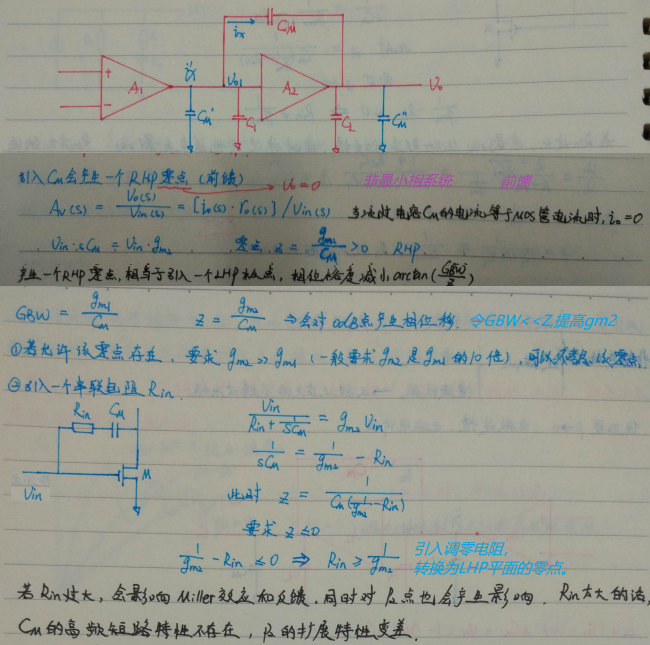 Cм
iₓ
iₓ'
+
A₁
−
Vo₁
A₂
Vo
Cм'
C₁
C₂
Cм''
引入Cм会产生一个RHP零点（前馈） → Vo=0 非最小相系统 前馈
Av(s) = Vo(s)/Vin(s) = [io(s)·ro(s)]/Vin(s) 当流过电容Cм的电流等于MOS管电流时, io=0
Vin·sCм = Vin·gm2 零点 z = gm2/Cм >0 RHP
产生一个RHP零点, 相当于引入一个LHP极点, 相位裕度减小 arctan(GBW/z)
GBW = gm1/Cм z = gm2/Cм ⇒ 会对0dB点产生相位移. 令GBW<<Z,提高gm2
①若允许该零点存在, 要求 gm2 >> gm1 (一般要求gm2是gm1的10倍), 可以不考虑该零点.
②引入一个串联电阻Rin.
Rin Cм
M
Vin
Vin/(Rin+1/sCм) = gm2 Vin
1/sCм = 1/gm2 − Rin
此时 z = 1/(Cм(1/gm2−Rin))
要求 z≤0
1/gm2 − Rin ≤ 0 ⇒ Rin ≥ 1/gm2
引入调零电阻,
转换为LHP平面的零点。
若Rin过大, 会影响Miller效应和反馈, 同时对P点也会产生影响. Rin太大的话,
Cм的高频短路特性不存在, P的扩展特性变差.